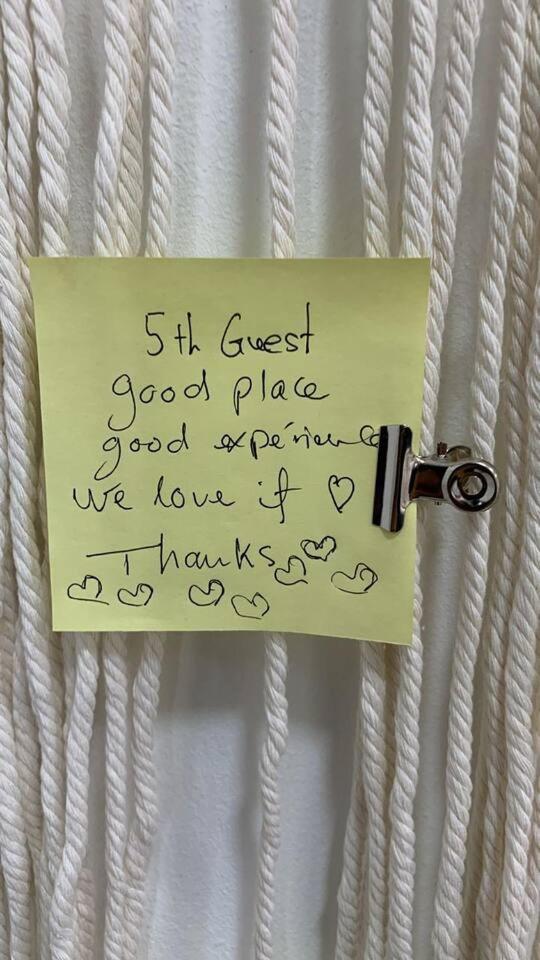 5th Guest
good place
good expérience
We love it ♡
Thanks